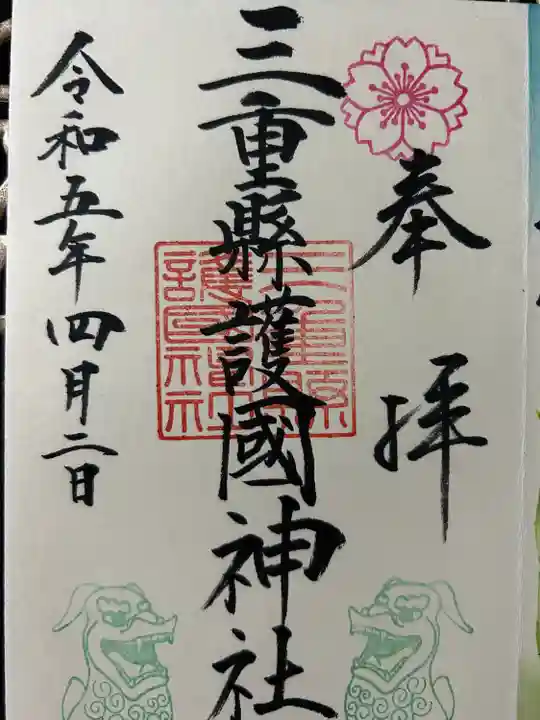 奉拝
三重縣護國神社
三重県護国神社
令和五年四月二日